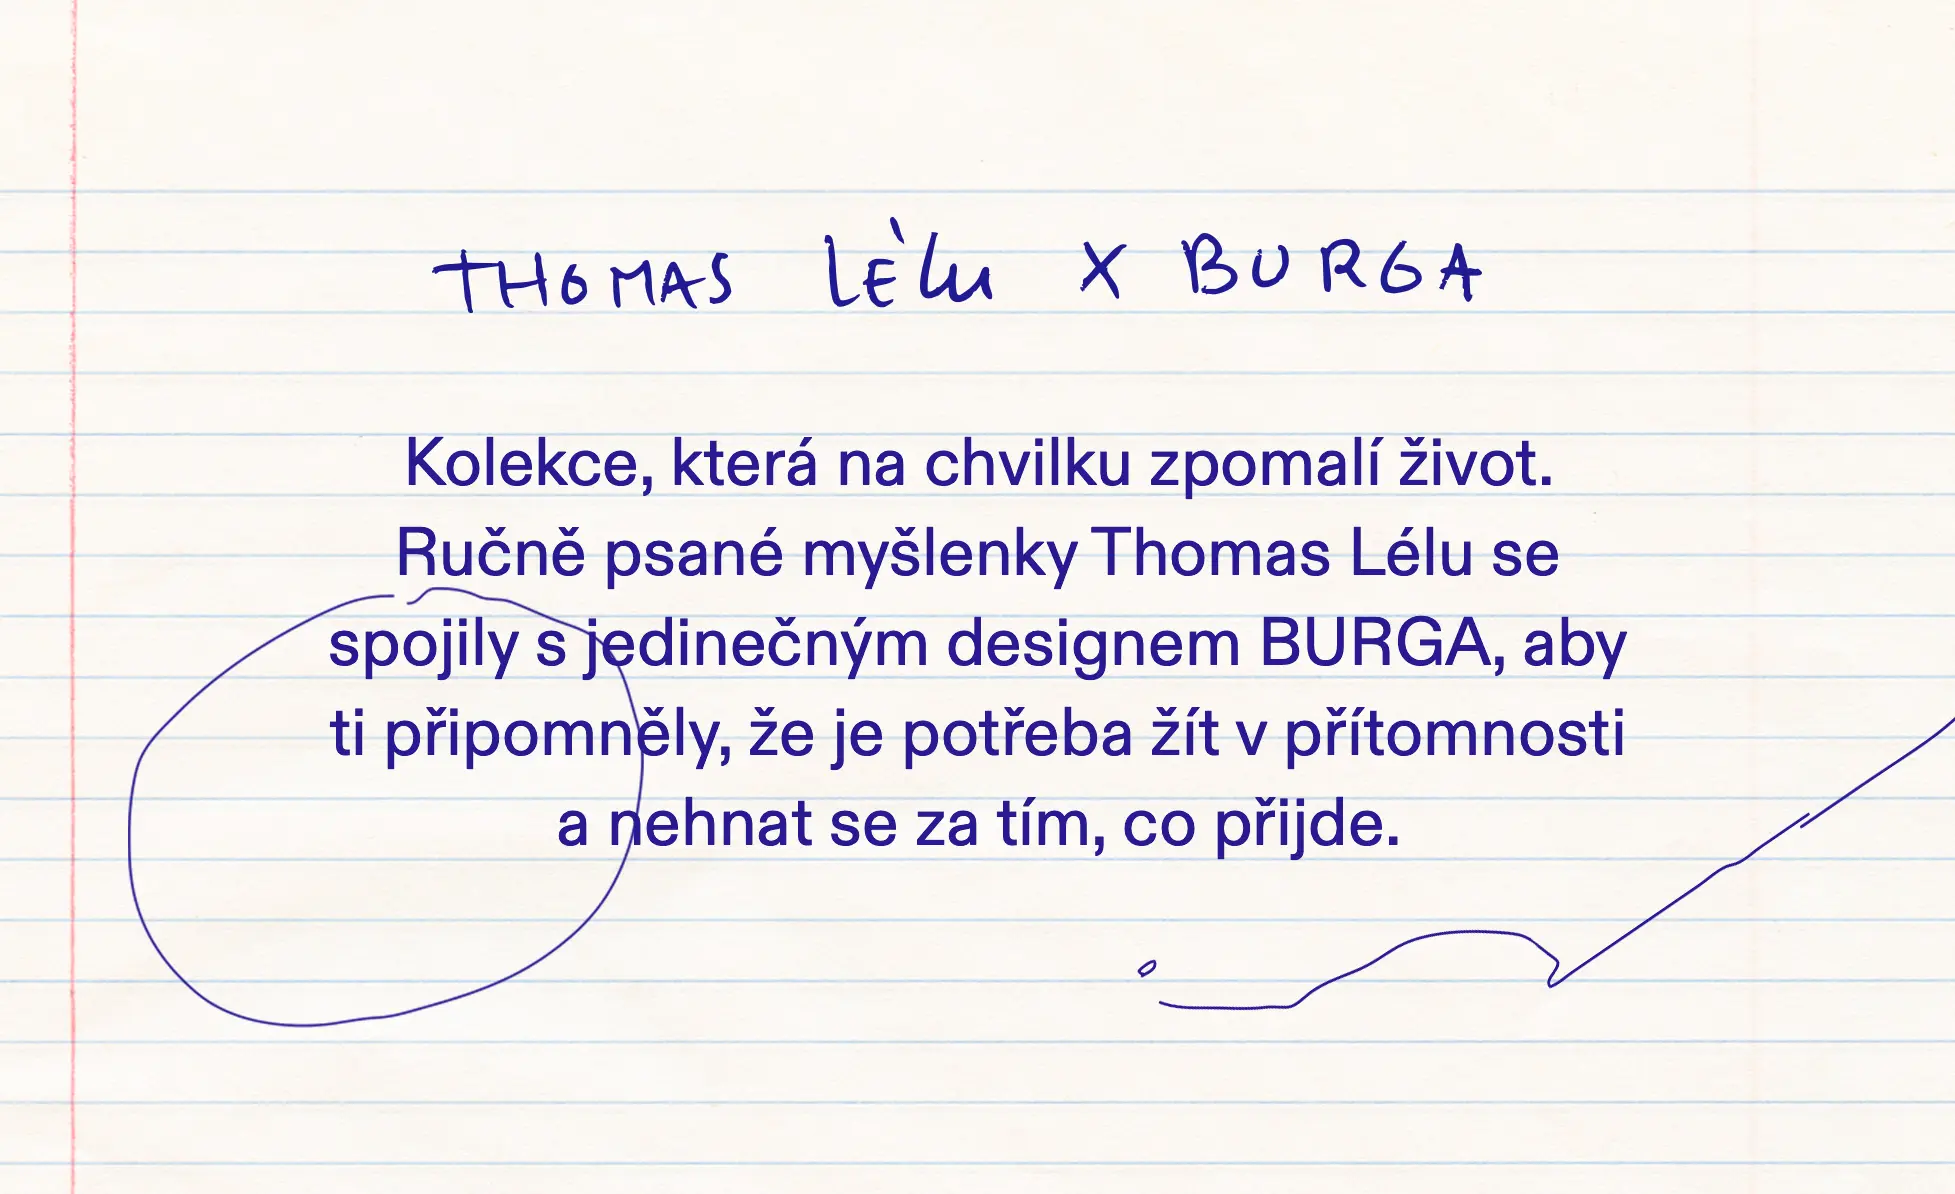 THOMAS LÉLU X BURGA
Kolekce, která na chvilku zpomalí život.
Ručně psané myšlenky Thomas Lélu se
spojily s jedinečným designem BURGA, aby
ti připomněly, že je potřeba žít v přítomnosti
a nehnat se za tím, co přijde.